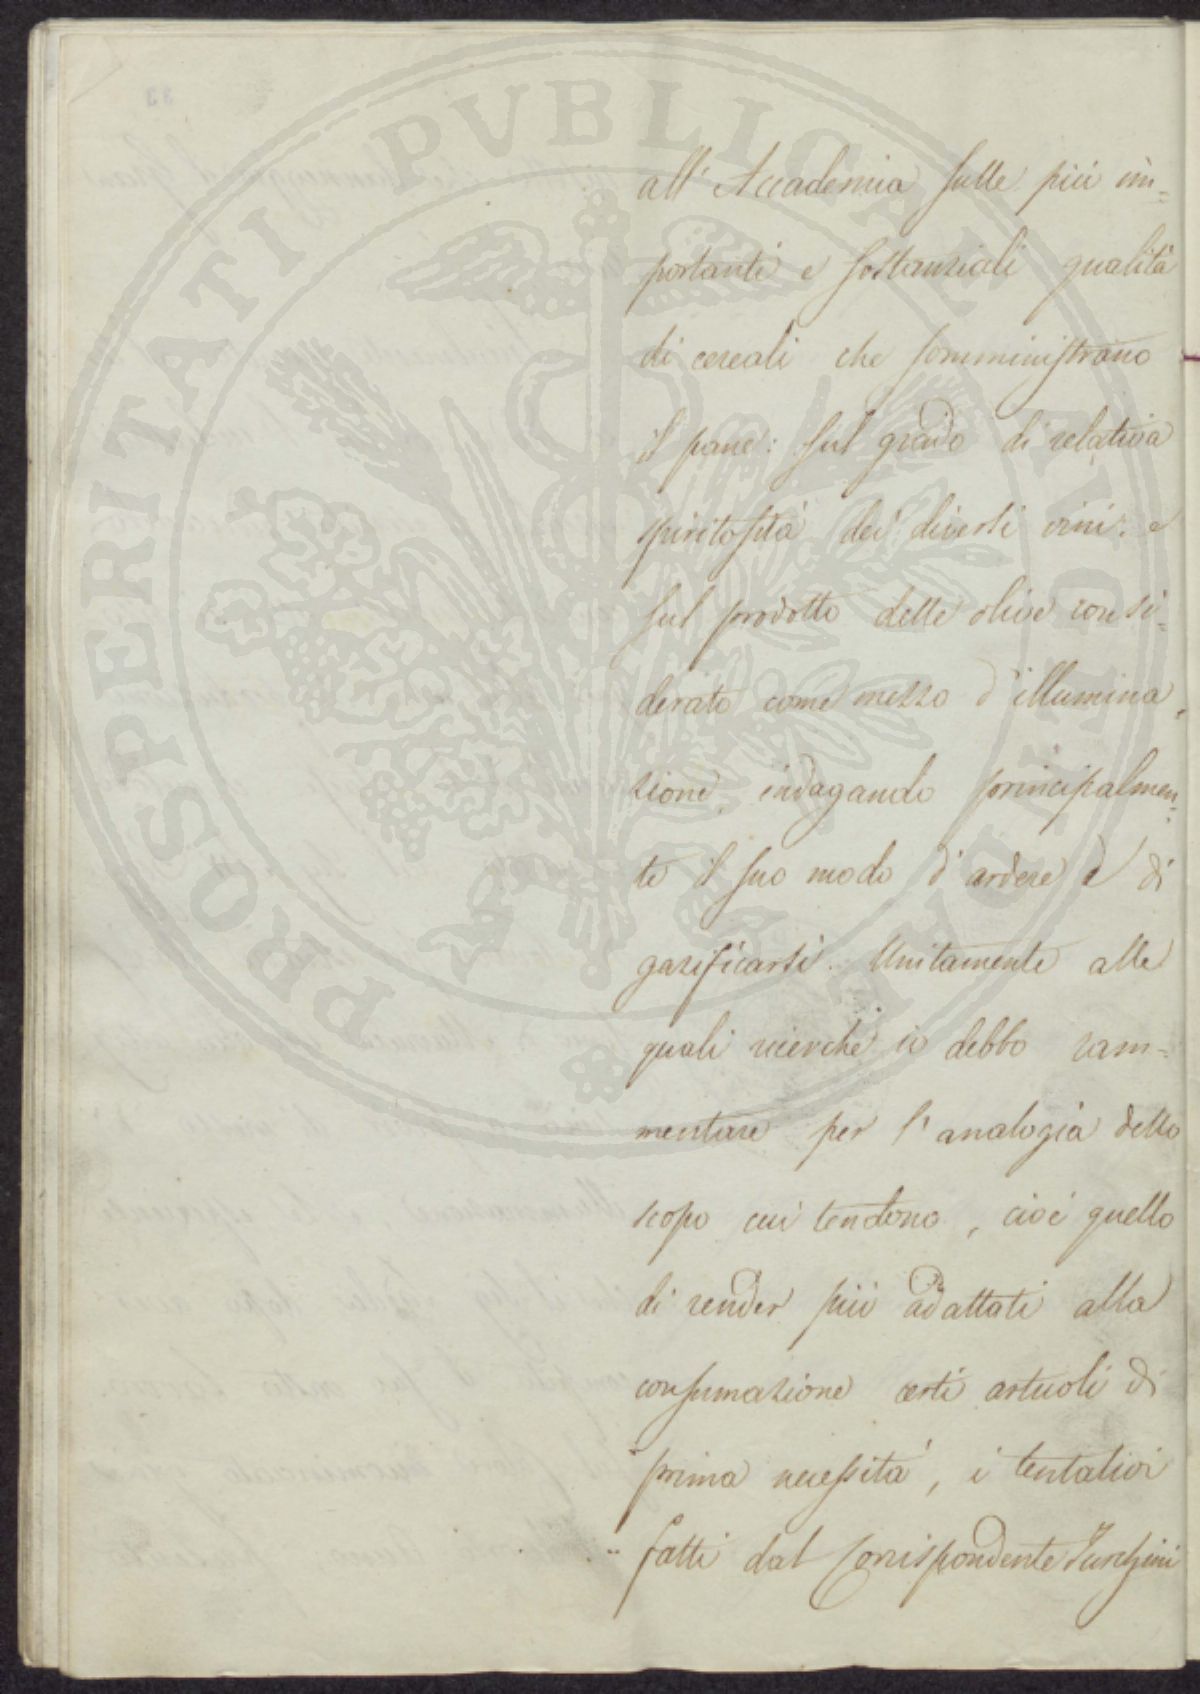 PROSPERITATI PVBLICAE AVGENDAE
all' Accademia sulle più im=
portanti e sostanziali qualità
di cereali che somministrano
il pane: sul grado di relativa
spiritosità dei diversi vini: e
sul prodotto delle olive consi=
derato come mezzo d'illumina,
zione, indagando principalmen=
te il suo modo d'ardere e di
gasificarsi. Unitamente alle
quali ricerche io debbo ram=
mentare per l'analogia dello
scopo cui tendono, cioè quello
di render più adattati alla
consumazione certi articoli di
prima necessità, i tentativi
fatti dal Corrispondente